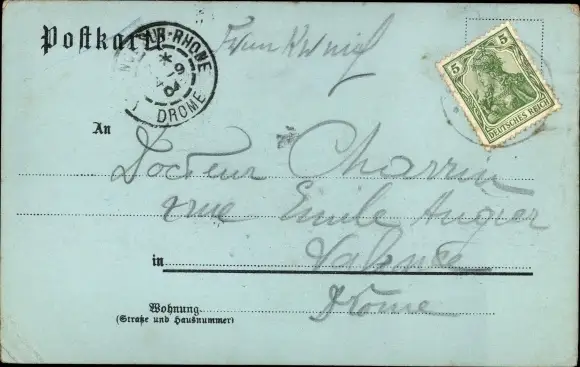 Postkarte
SUR-RHONE
DROME
5 5
DEUTSCHES REICH
An
Docteur Charrin
rue Emile Augier
in Valence
Drome
Wohnung
(Straße und Hausnummer)